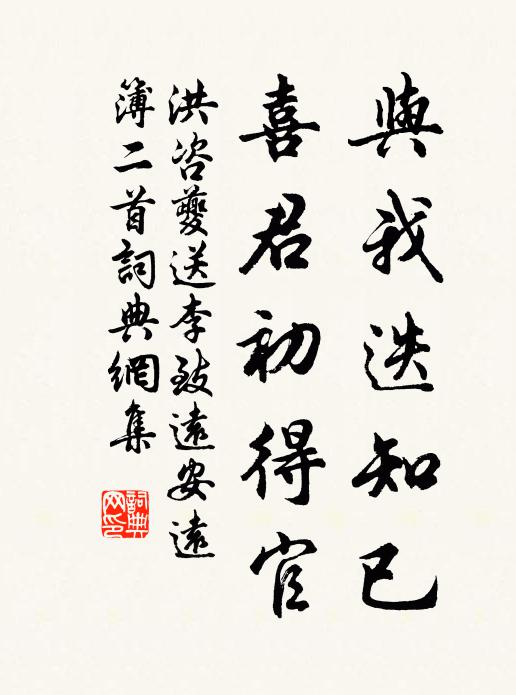 與我迭知己
喜君初得官
洪咨夔送李致遠安遠
簿二首詞典網集
詞典
网印